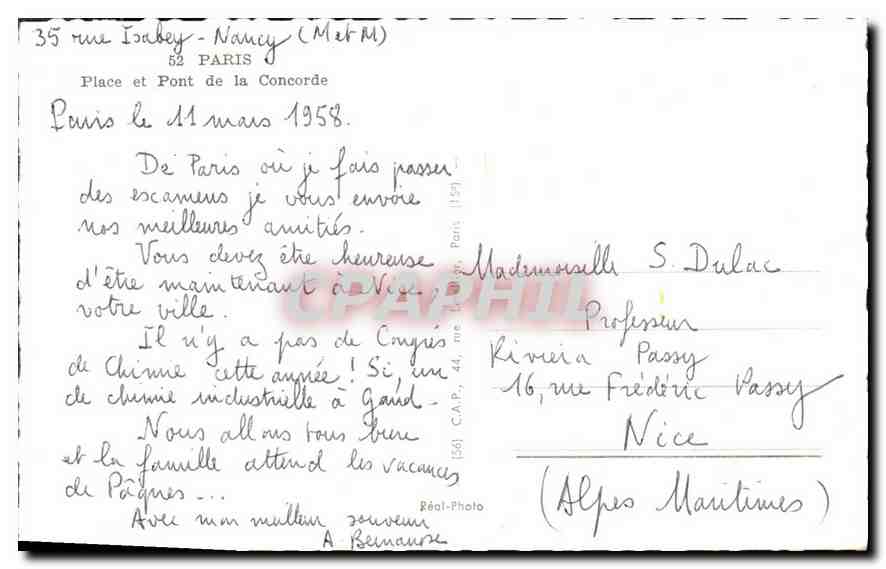 35 rue Isabey - Nancy (M et M)
52 PARIS
Place et Pont de la Concorde
Paris le 11 mars 1958.
De Paris où je fais passer
des examens je vous envoie
nos meilleures amitiés.
Vous devez être heureuse
d'être maintenant à Nice,
votre ville.
Il n'y a pas de Congrès
de Chimie cette année ! Si, un
de chimie industrielle à Gand -
Nous allons tous bien
et la famille attend les vacances
de Pâques ...
Avec mon meilleur souvenir
A. Bernanose
(56) C.A.P., 44, rue Paris (15e)
Réal-Photo
Mademoiselle S. Dulac
Professeur
Riviera Passy
16, rue Frédéric Passy
Nice
(Alpes Maritimes)
CPAPHIL